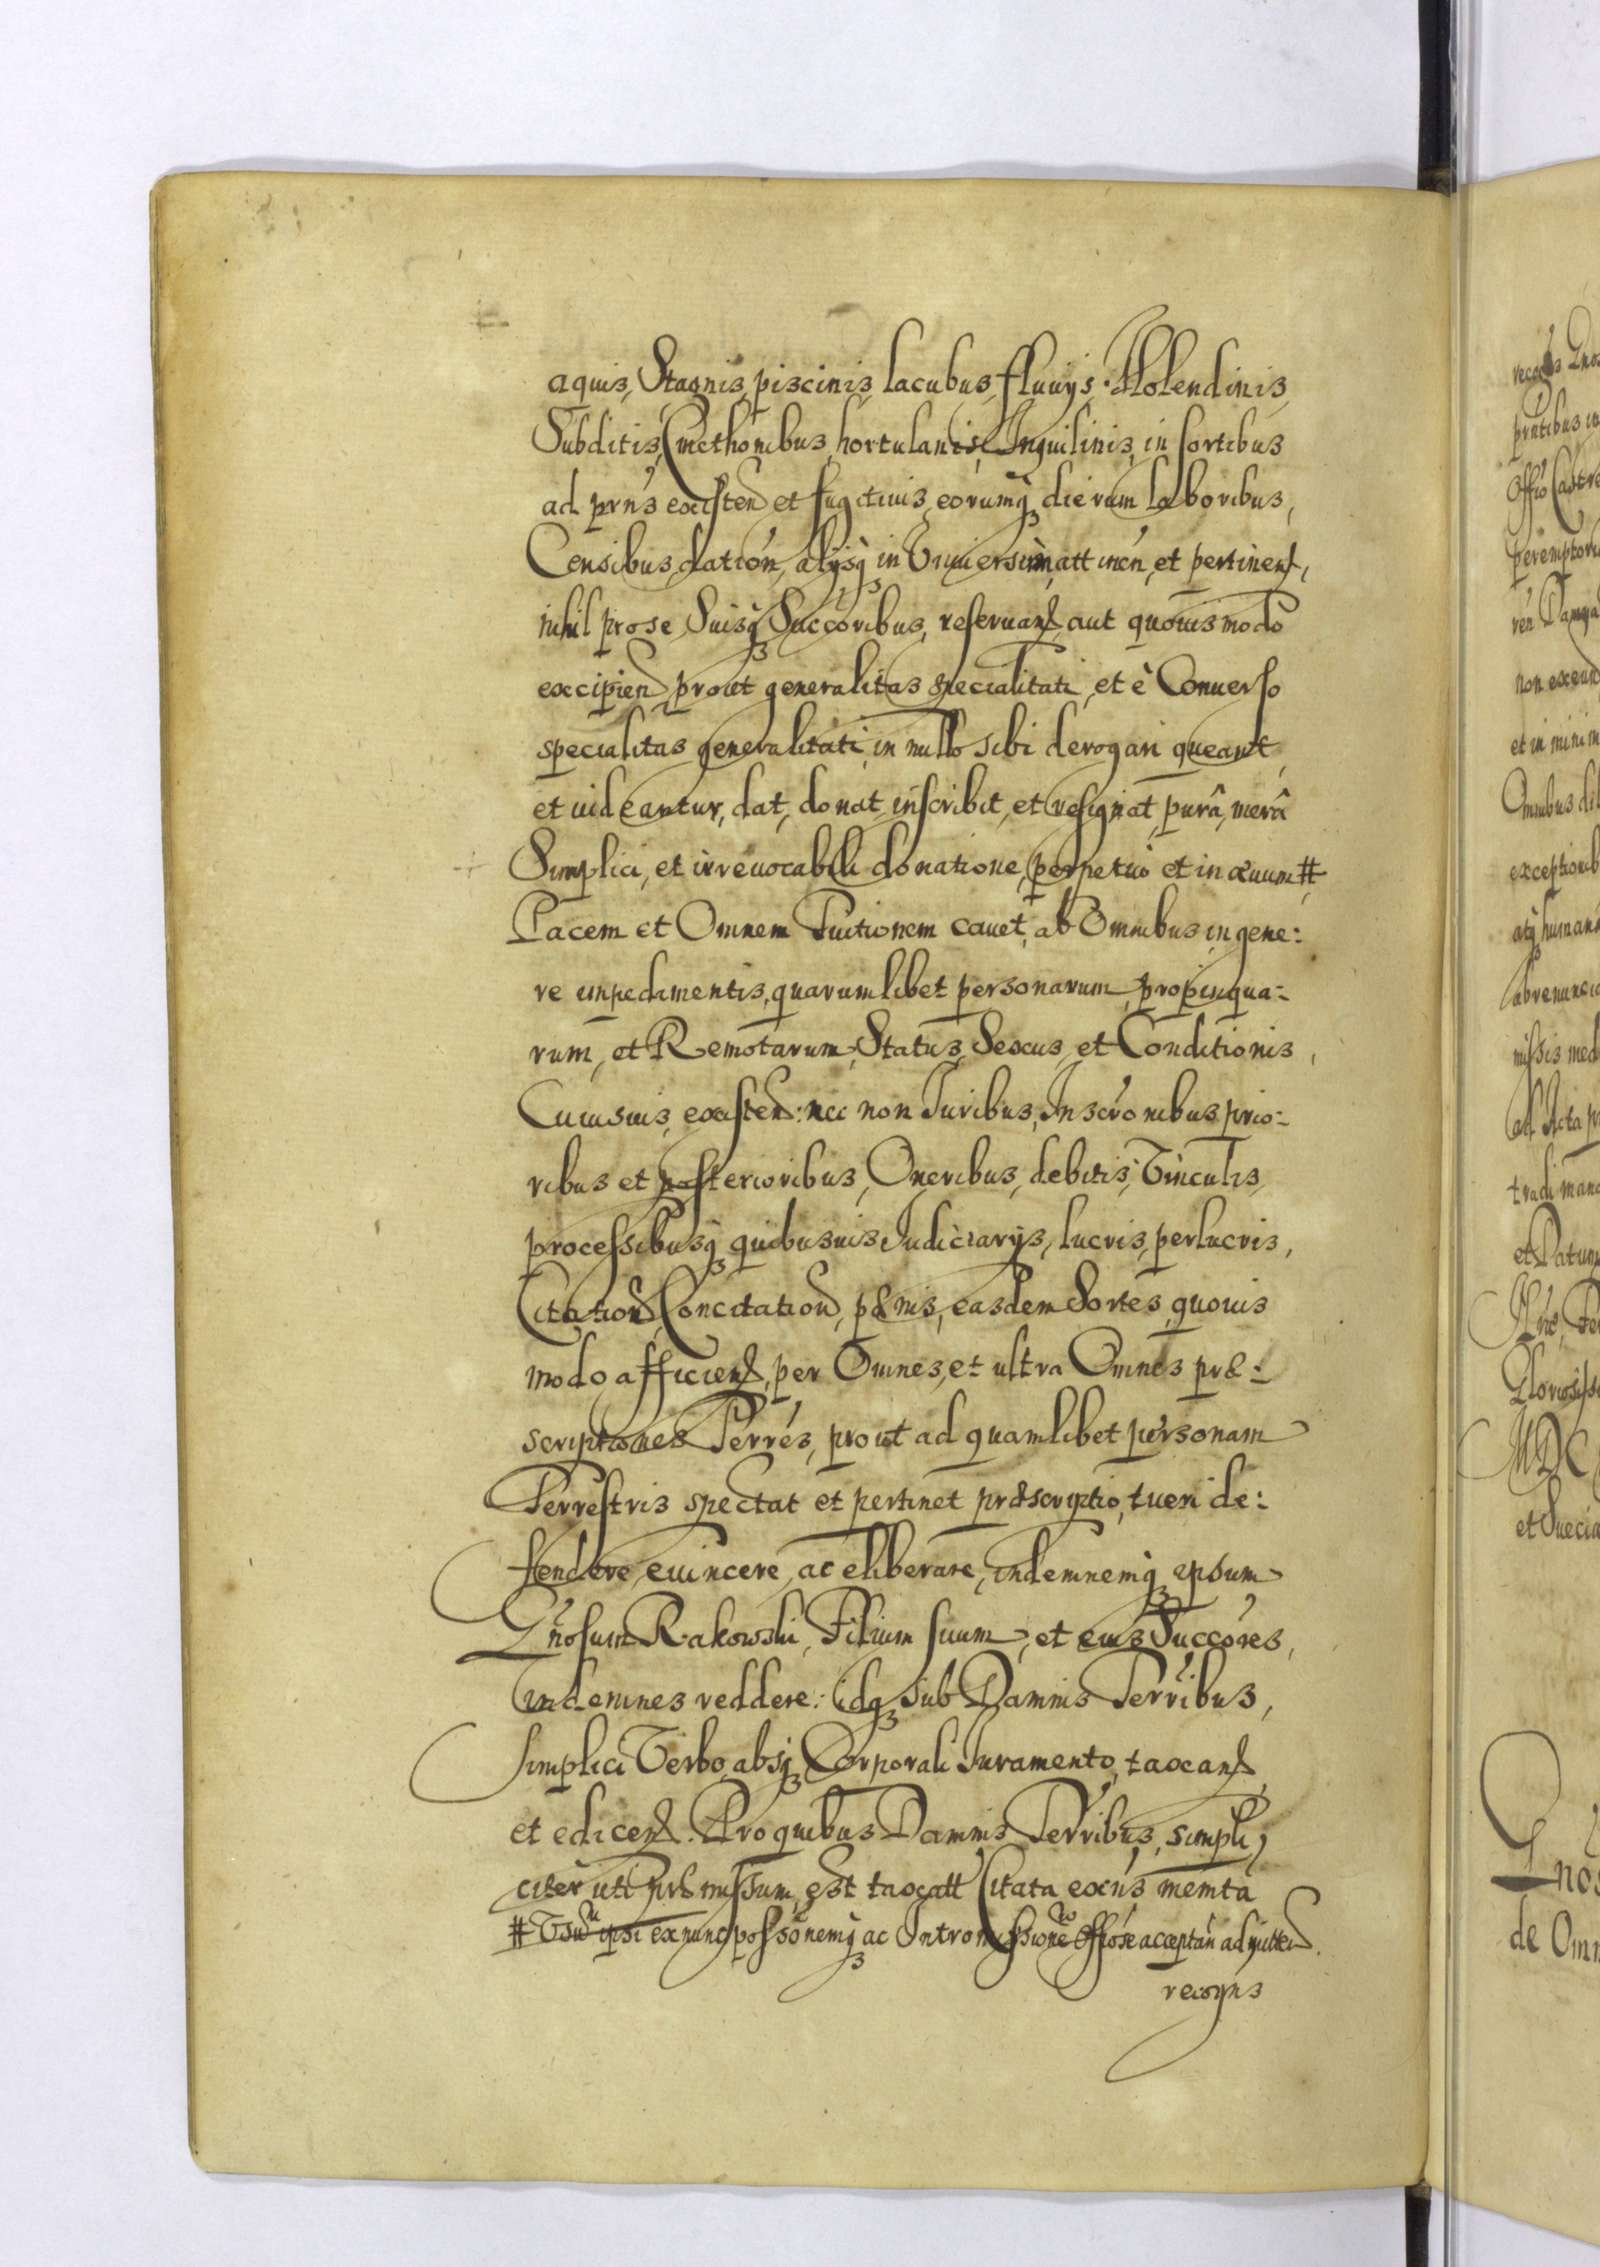 aquis, Stagnis, piscinis, lacubus, fluuijs, Molendinis,
Subditis, Cmethonibus, hortulanis, Inquilinis, in sortibus
ad prn̄s existen̄ et fugitiuis, eorumq3 dierum laboribus,
Censibus, dation̄, alijsq3 in Vniuersum, attinen̄, et pertinen̄,
nihil pro se Suisq3 Succoribus, reseruan̄, aut quouis modo
excipien̄, prout generalitas specialitati, et è Conuerso
specialitas generalitati, in nullo sibi derogari queant,
et uideantur, dat, donat, inscribit, et resignat, purâ, merâ
Simplici, et irreuocabili donatione, perpetuò et in æuum #
Pacem et Omnem Tuitionem cauet, ab Omnibus in gene:
re impedimentis, quarumlibet personarum, propinqua:
rum, et Remotarum, Status, Sexus, et Conditionis,
Cuiusuis, existen̄: nec non Iuribus, Inscrōnibus prio:
ribus et posterioribus, Oneribus, debitis, Vinculis,
processibusq3 quibusuis Iudiciarijs, lucris, perlucris,
Citation̄, Concitation̄, pænis, easdem Sortes, quouis
modo afficien̄, per Omnes, et ultra Omnes præ:
scriptiones Terrēs, prout ad quamlibet personam
Terrestris spectat et pertinet præscriptio, tueri de:
fendere, euincere, ac eliberare, indemnemq3 ipsum
Gn̄osum Rakowski, Filium suum, et eius Succōres,
Indemnes reddere: idq3 sub Damnis Terribus,
simplici Verbo, absq3 Corporali Iuramento, taxan̄
et edicen̄. Pro quibus Damnis Terribus, simpli,
citer uti præmissum est taxatt Citata exn̄s memta
# Vsum ipsi ex nunc possōnemq3 ac Intromissionē Offiose acceptan̄ admitten̄.
recogn̄s